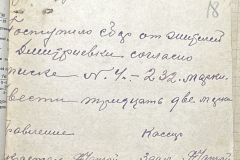 18
Поступило сбор от жителей
Дмитриевки согласно
писке № 4 - 232 марки.
вести тридцать две марки
равление Кассир